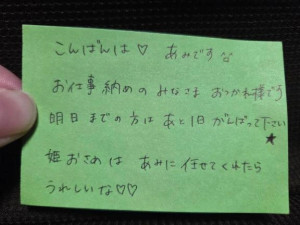 こんばんは♡ あみです☆
お仕事納めのみなさま おつかれ様です
明日までの方は あと1日 がんばって下さい★
姫おさめは あみに任せてくれたら
うれしいな♡♡